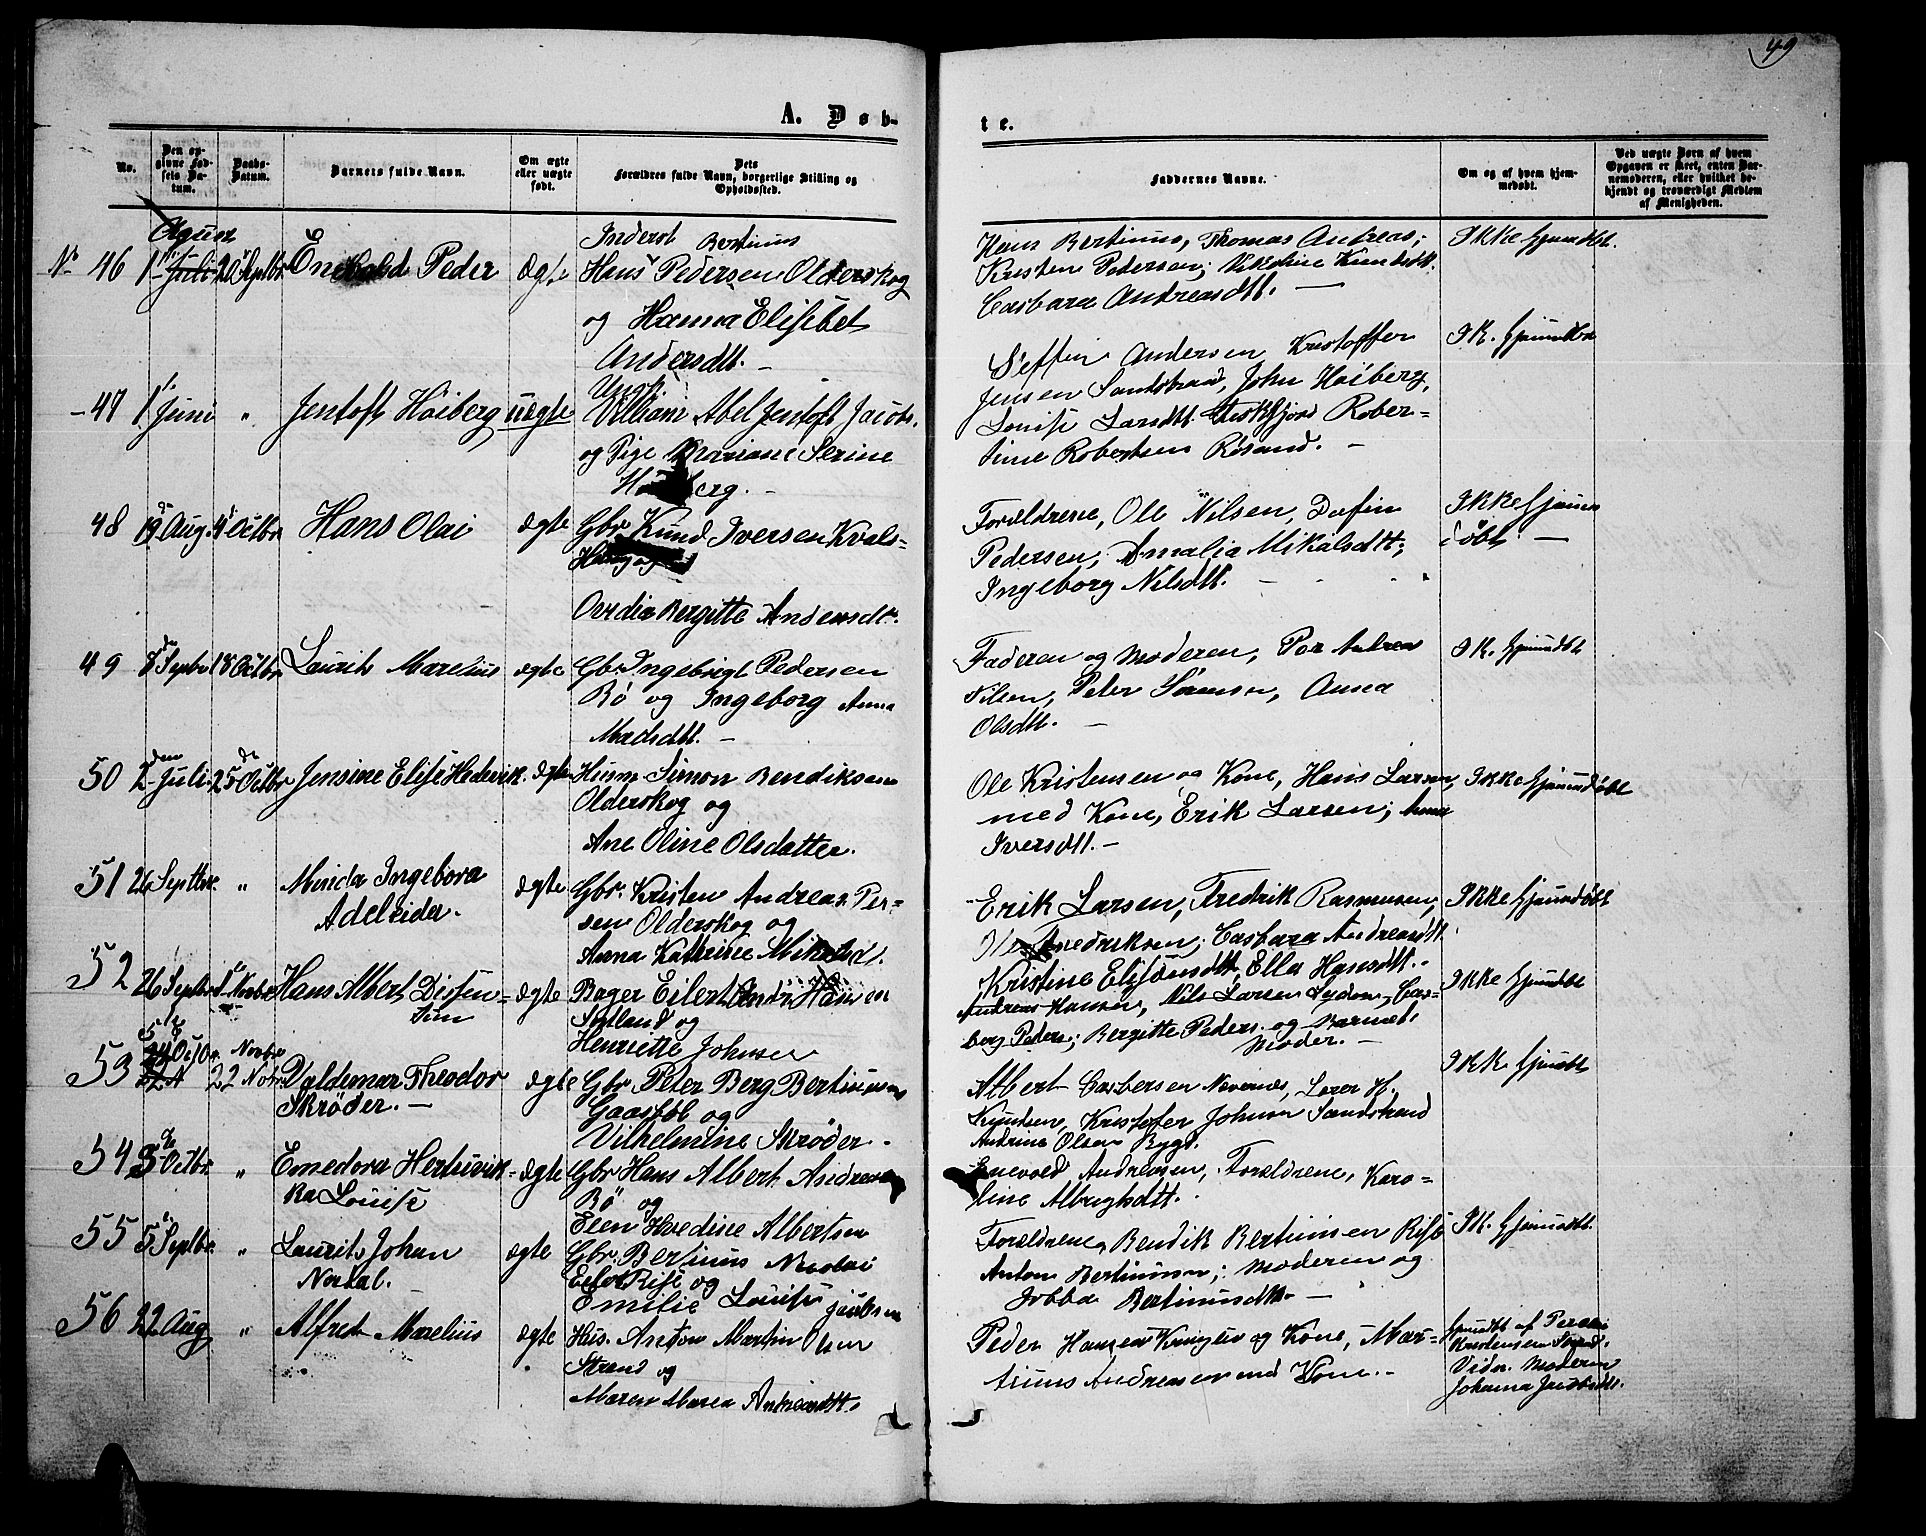 49
A. Døb-
te.
No.
Den op-
givne Fød-
sels Da-
tum.
Daabs-
Datum.
Barnets fulde Navn.
Om ægte
eller uægte
født.
Dets
Forældres fulde Navn, borgerlige Stilling og
Opholdssted.
Faddernes Navne.
Om og af hvem hjem-
medøbt.
Ved uægte Børn af hvem
Opgaven er skeet, enten Bar-
nemoderen, eller hvilket be-
kjendt og troværdigt Medlem
af Menigheden.
No 46 1 Juli 20 Septbr Peder ægte
Inderst Bertinus
Hans Pedersen Olderskog
og Hanna Elisebet
Andersdt. -
Hans Bertinus, Thomas Andreas,
Kristen Pedersen; Knudsdt.
Casbara Andreasdt. -
Ikke hjemdbt.
- 47 1 Juni " Jentoft Høiberg uægte
William Abel Jentoft Jacobs.
og Pige Mariane Serine
Høiberg. -
Andersen, Kristoffer
Jensen Sandstrand, John Høiberg,
Lovise Larsdt. Rober=
tine Robertsen Røsand. -
Ik. hjemdbt
48 19 Aug. 4 Octbr. Hans Olai ægte
Gbr Knud Iversen Kvals=
Haug og
Ovedia Bergitte Andersdt.
Forældrene, Ole Nilsen, Dafin
Pedersen, Amalia Mikalsdtt;
Ingeborg Nilsdt. -
Ikke hjem
døbt. -
49 8 Septbr 18 Octbr. Laurits Marelius ægte
Gbr Ingebrigt Pedersen
Bø og Ingeborg Anna
Madsdtt. -
Faderen og Moderen, Per Andreas
Nilsen, Peter Sørensen, Anna
Olsdt. -
Ik. hjemdbt
50 2 Juli 25 Octbr Jensine Elise Hedevik. ægte
Husm Simon Bendiksen
Olderskog og
Ane Oline Olsdatter.
Ole Kristensen og Kone, Hans Larsen
med Kone, Erik Larsen; Anna
Iversdt. -
Ikke hjemdøbt
51 26 Septbr. " Minda Ingebora
Adeleider.
ægte
Gbr. Kristen Andreas Per=
sen Olderskog og
Anna Katrine
Erik Larsen, Fredrik Rasmussen,
Casbara Andreasdt.
Kristine Ella Hansdt. -
Ikke hjemdøbt
52 26 Septbr 1 Novbr Hans Albert Disen=
Sim
ægte
Bager Eilert Hansen
og
Henriette Johnsen
Andreas Hansen, Nils Larsen Cas=
berg Peders; Bergitte Peders. og Barnets
Moder. -
Ikke hjemdbt
53 22 Nobr. Valdemar Theodor
Skrøder. -
ægte
Gbr Peter Berg Bertinusen
og
Vilhelmine Skrøder -
Albert Casbersen Nævernes, Lorer H.
Knudsen, Kristofer Johnsen Sandstrand
Andrine Olsen Bygd.
Ikk hjemdbt
54 3 Octbr. " Emedora Hertsvik-
ka Louise
ægte
Gbr Hans Albert Andreasen
Bø og
Elen Hvedine Albertsen
Enevold Andreasen, Forældrene, Karo=
line Albregtsdtt.
55 5 Septbr. " Laurits Johan
Nordal.
ægte
Gbr. Bertinus Nicolai
og
Emilie Lovise Jacobsen
Forældrene, Bendik Bertinusen
Anton Bertinusen; Moderen og
Jobba Bertinusdt. -
Ik. hjemdt.
56 22 Aug " Alfred Marelius ægte
Hus. Anton Martin Olsen
Strand og
Maren Marea Andreasdt.
Peder Hansen og Kone, Mar=
tinus Andreasen med Kone. -
hjemdt af Peder
Kristensen Strand.
Vidn. Moderen
Johanna Jacobsdt.